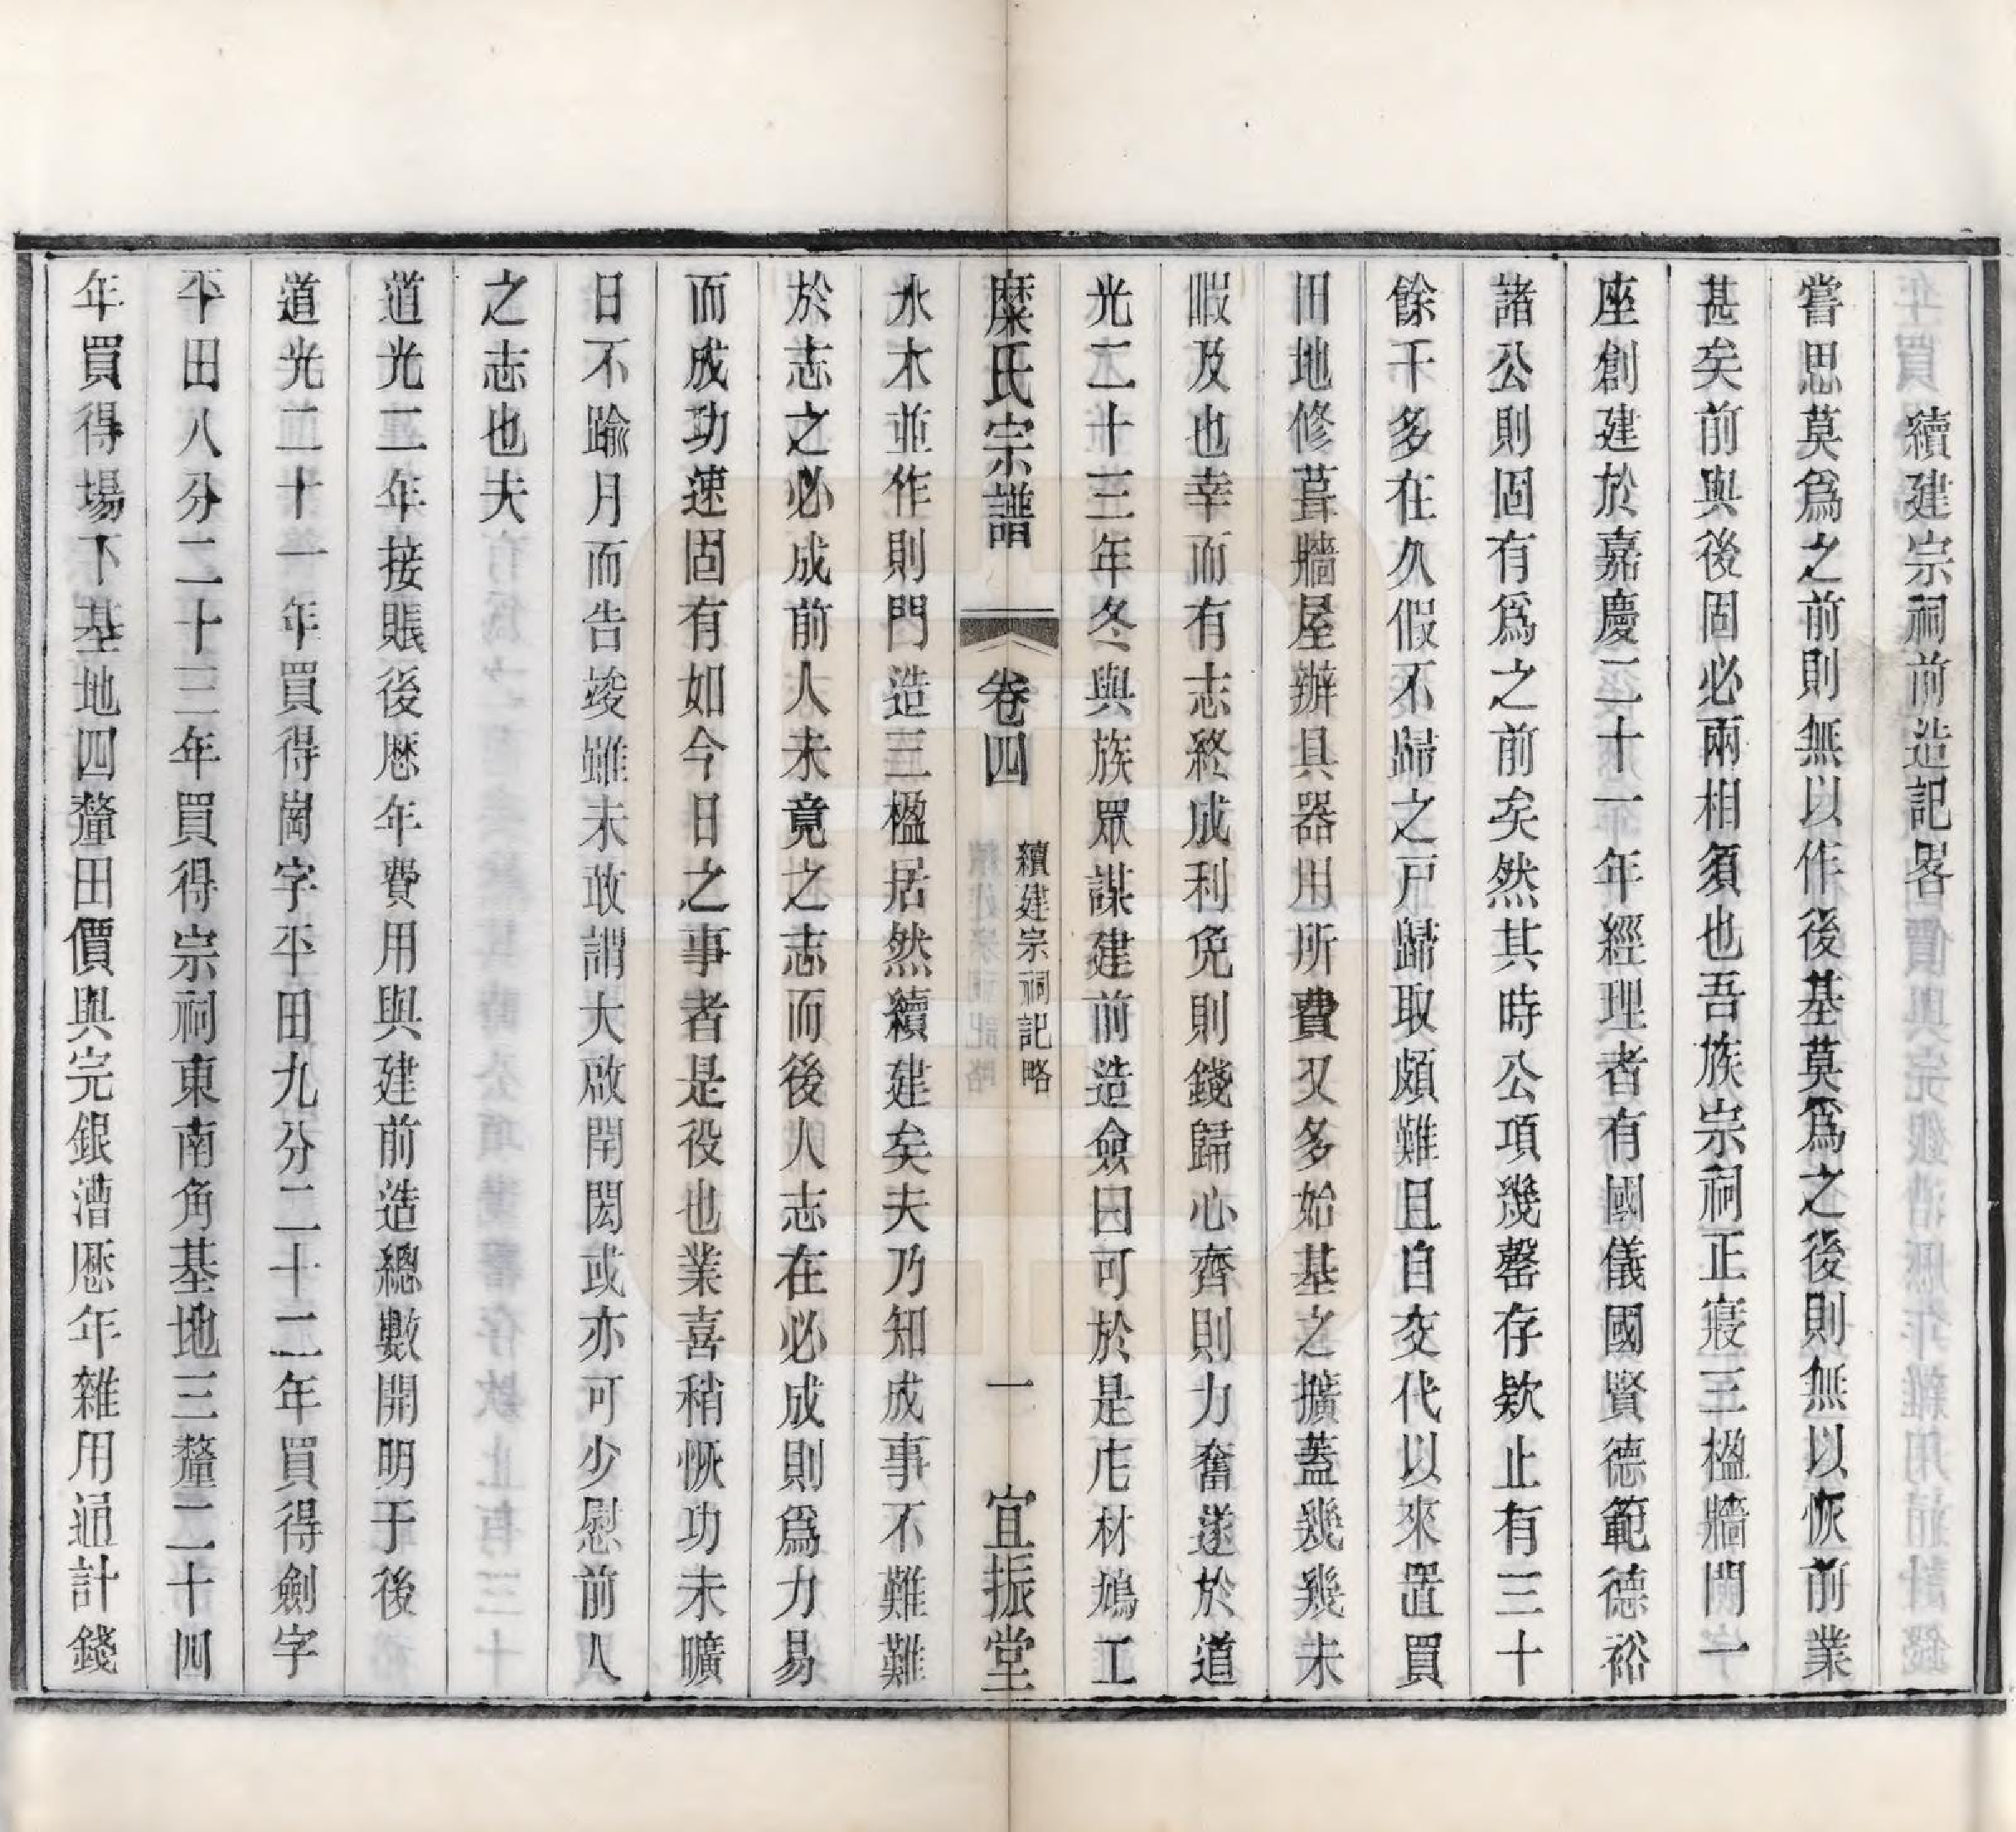 續建宗祠前造記畧
嘗思莫爲之前則無以作後基莫爲之後則無以恢前業
甚矣前與後固必兩相須也吾族宗祠正寢三楹牆門一
座創建於嘉慶二十一年經理者有國儀國賢德範德裕
諸公則固有爲之前矣然其時公項幾罄存欵止有三十
餘千多在久假不歸之戸歸取頗難且自交代以來置買
田地修葺牆屋辦具器用所費又多始基之擴蓋幾幾未
暇及也幸而有志終成利免則錢歸心齊則力奮遂於道
光二十三年冬與族眾謀建前造僉曰可於是庀材鳩工
糜氏宗譜 卷四 續建宗祠記略 一 宜振堂
水木並作則門造三楹居然續建矣夫乃知成事不難難
於志之必成前人未竟之志而後人志在必成則爲力易
而成功速固有如今日之事者是役也業喜稍恢功未曠
日不踰月而告竣雖未敢謂大啟閈閎或亦可少慰前人
之志也夫
道光二年接賬後歷年費用與建前造總數開明于後
道光二十一年買得崗字平田九分二十二年買得劍字
平田八分二十三年買得宗祠東南角基地三釐二十四
年買得場下基地四釐田價與完銀漕歷年雜用通計錢